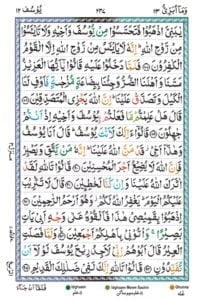 وَمَآ اُبَرِّئُ ١٣ ٢٣٤ يُوسُف ١٢
يٰبَنِيَّ اذْهَبُوْا فَتَحَسَّسُوْا مِنْ يُّوْسُفَ وَاَخِيْهِ وَلَا تَايْـَٔسُوْا
مِنْ رَّوْحِ اللّٰهِ ؕ اِنَّهٗ لَا يَايْـَٔسُ مِنْ رَّوْحِ اللّٰهِ اِلَّا الْقَوْمُ
الْكٰفِرُوْنَ فَلَمَّا دَخَلُوْا عَلَيْهِ قَالُوْا يٰۤاَيُّهَا الْعَزِيْزُ
مَسَّنَا وَاَهْلَنَا الضُّرُّ وَجِئْنَا بِبِضَاعَةٍ مُّزْجٰىةٍ فَاَوْفِ لَنَا
الْكَيْلَ وَتَصَدَّقْ عَلَيْنَا ؕ اِنَّ اللّٰهَ يَجْزِي الْمُتَصَدِّقِيْنَ قَالَ
هَلْ عَلِمْتُمْ مَّا فَعَلْتُمْ بِيُوْسُفَ وَاَخِيْهِ اِذْ اَنْتُمْ
جٰهِلُوْنَ قَالُوْۤا ءَاِنَّكَ لَاَنْتَ يُوْسُفُ ؕ قَالَ اَنَا يُوْسُفُ وَهٰذَاۤ
اَخِيْ قَدْ مَنَّ اللّٰهُ عَلَيْنَا ؕ اِنَّهٗ مَنْ يَّتَّقِ وَيَصْبِرْ
فَاِنَّ اللّٰهَ لَا يُضِيْعُ اَجْرَ الْمُحْسِنِيْنَ قَالُوْا تَاللّٰهِ لَقَدْ
اٰثَرَكَ اللّٰهُ عَلَيْنَا وَاِنْ كُنَّا لَخٰطِـِٕيْنَ قَالَ لَا تَثْرِيْبَ
عَلَيْكُمُ الْيَوْمَ ؕ يَغْفِرُ اللّٰهُ لَكُمْ وَهُوَ اَرْحَمُ الرّٰحِمِيْنَ
اِذْهَبُوْا بِقَمِيْصِيْ هٰذَا فَاَلْقُوْهُ عَلٰى وَجْهِ اَبِيْ يَاْتِ
بَصِيْرًا ۚ وَاْتُوْنِيْ بِاَهْلِكُمْ اَجْمَعِيْنَ وَلَمَّا فَصَلَتِ
الْعِيْرُ قَالَ اَبُوْهُمْ اِنِّيْ لَاَجِدُ رِيْحَ يُوْسُفَ لَوْلَاۤ اَنْ
تُفَنِّدُوْنِ قَالُوْا تَاللّٰهِ اِنَّكَ لَفِيْ ضَلٰلِكَ الْقَدِيْمِ